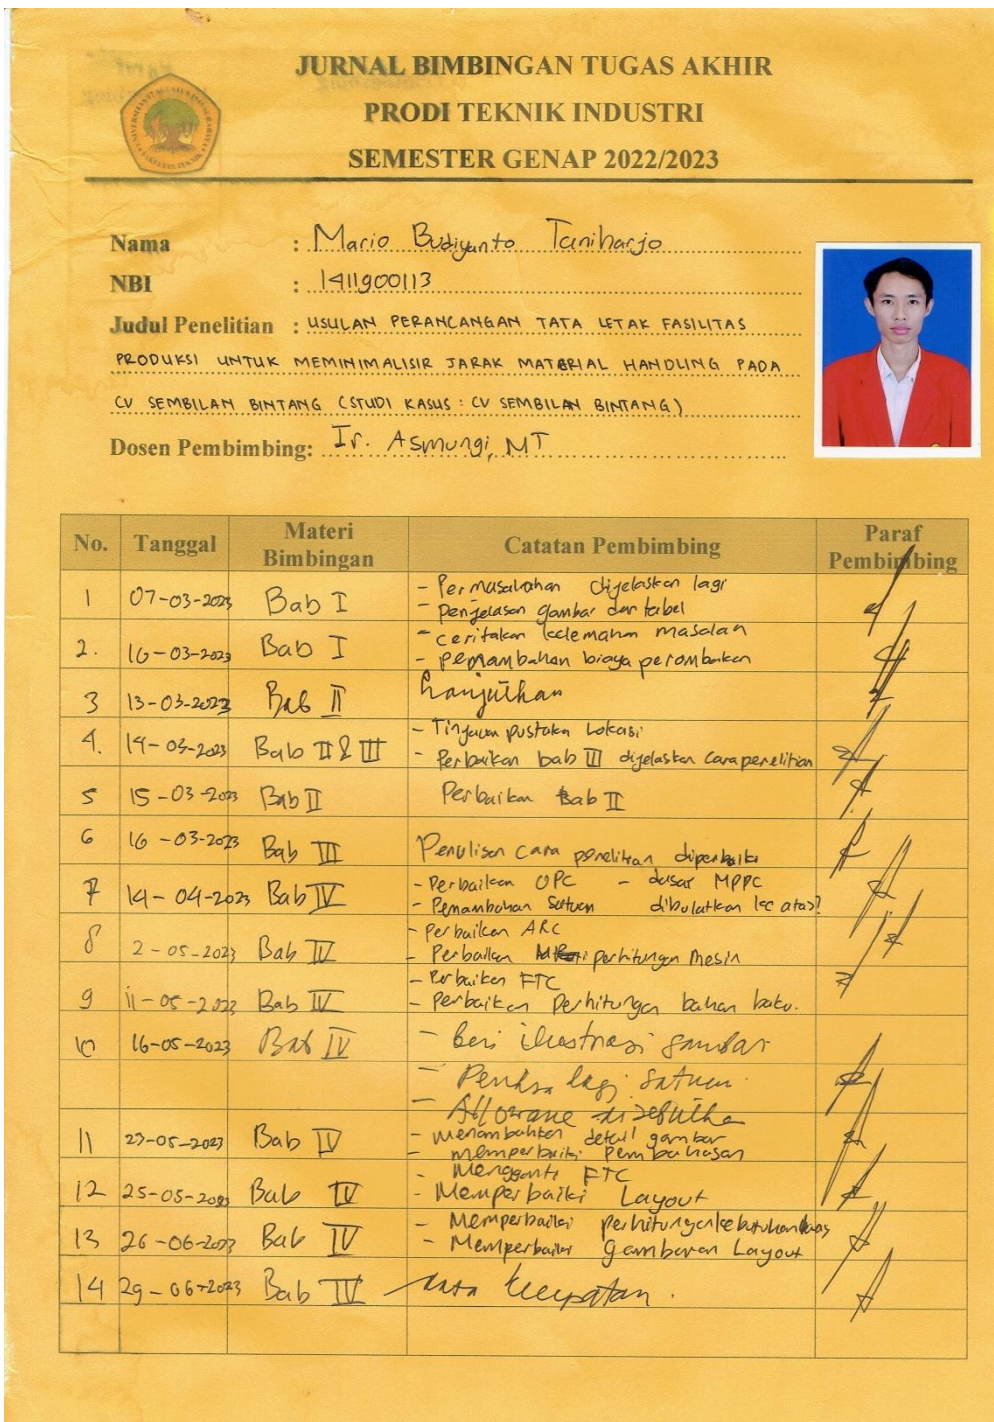 JURNAL BIMBINGAN TUGAS AKHIR
PRODI TEKNIK INDUSTRI
SEMESTER GENAP 2022/2023
FAKULTAS TEKNIK
Nama : Mario Budiyanto Taniharjo
NBI : 1411900113
Judul Penelitian : USULAN PERANCANGAN TATA LETAK FASILITAS
PRODUKSI UNTUK MEMINIMALISIR JARAK MATERIAL HANDLING PADA
CV SEMBILAN BINTANG (STUDI KASUS : CV SEMBILAN BINTANG)
Dosen Pembimbing: Ir. Asmungi, MT
No. Tanggal Materi Bimbingan Catatan Pembimbing Paraf Pembimbing
1 07-03-2023 Bab I - Permasalahan dijelaskan lagi
- penjelasan gambar dan tabel
2. 10-03-2023 Bab I - ceritakan kelemahan masalah
- penambahan biaya perombakan
3 13-03-2023 Bab II Lanjutkan
4. 14-03-2023 Bab II & III - Tinjauan pustaka Lokasi
- Perbaikan bab III dijelaskan cara penelitian
5 15-03-2023 Bab II Perbaikan Bab II
6 16-03-2023 Bab III Penulisan cara penelitian diperbaiki
7 14-04-2023 Bab IV - Perbaikan OPC - dasar MPPC
- Penambahan Satuan dibulatkan ke atas?
8 2-05-2023 Bab IV - Perbaikan ARC
- Perbaikan perhitungan mesin
9 11-05-2023 Bab IV - Perbaikan FTC
- Perbaikan Perhitungan bahan baku.
10 16-05-2023 Bab IV - Beri ilustrasi gambar
- Periksa lagi satuan.
- Allowance
11 23-05-2023 Bab IV - menambahkan detail gambar
- memperbaiki Pembahasan
12 25-05-2023 Bab IV - Mengganti FTC
- Memperbaiki Layout
13 26-06-2023 Bab IV - Memperbaiki perhitungan kebutuhan luas
- Memperbaiki Gambaran Layout
14 29-06-2023 Bab IV